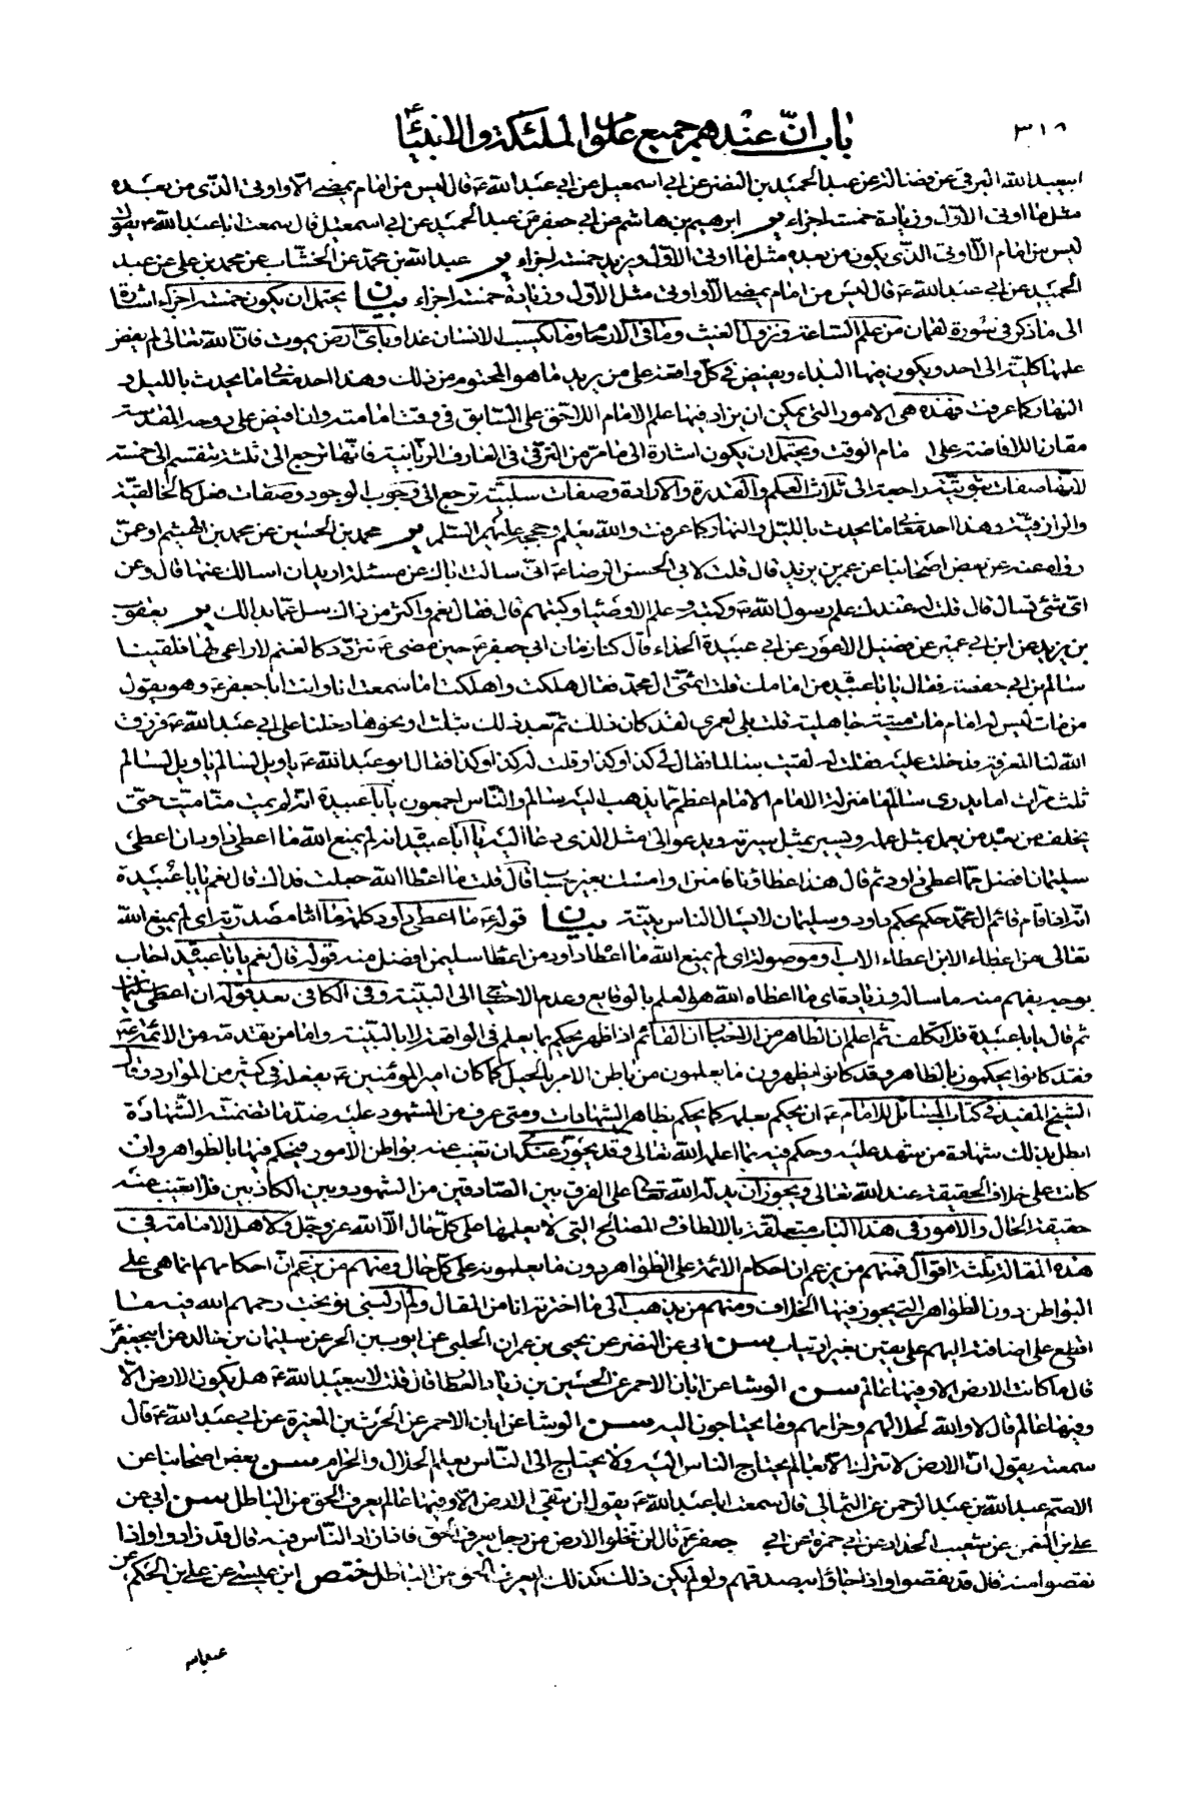 ٣١٨
باب انّ عندهم جميع علوم الملئكة والانبيآء
ابيعبدالله البرقي عن فضالة عن عبد الحميد بن النضر عن ابي اسمعيل عن ابي عبد الله ع قال ليس من امام يمضي الا واوتي الذي من بعده
مثل ما اوتي الاول وزيادة خمسة اجزاء ير ابرهيم بن هاشم عن ابي جعفر عن عبد الحميد عن ابي اسمعيل قال سمعت ابا عبد الله ع يقول
ليس من امام الا اوتي الذي يكون من بعده مثل ما اوتي الاول ويزيد خمسة اجزاء ير عبد الله بن محمد عن الخشاب عن محمد بن علي عن عبد
الحميد عن ابي عبد الله ع قال ليس من امام يمضي الا واوتي مثل الاول وزيادة خمسة اجزاء بيان يحتمل ان يكون خمسة اجزاء اشارة
الى ما ذكر في سورة لقمان من علم الساعة ونزول الغيث وما في الارحام وما تكسب الانسان غدا وباى ارض يموت فان الله تعالى لم يفض
علمها كلية الى احد ويكون فيها البداء ويفيض في كل واقعة على من يريد ما هو المحتوم من ذلك وهذا احد معاني ما يحدث بالليل و
النهار كما عرفت فهذه هي الامور التي يمكن ان يزاد فيها علم الامام اللاحق على السابق في وقت امامته وان افيض على روحه المقدسة
مقارنا للافاضة على امام الوقت ويحتمل ان يكون اشارة الى ما مر من الترقي في المعارف الربانية فانها ترجع الى ثلثة تنقسم الى خمسة
لانها صفات ثبوتية راجعة الى ثلاث العلم والقدرة والارادة وصفات سلبية ترجع الى وجوب الوجود وصفات فعل كالخالقية
والرازقية وهذا احد معاني ما يحدث بالليل والنهار كما عرفت والله يعلم وحججه عليهم السلم ير محمد بن الحسين عن محمد بن الهيثم او عمن
رواه عنه عن بعض اصحابنا عن عمر بن يزيد قال قلت لابي الحسن الرضا ع اني سالت اباك عن مسئلة اريد ان اسالك عنها قال وعن
اي شئ تسال قال قلت له عندك علم رسول الله ص وكتبه وعلم الاوصياء وكتبهم قال فقال نعم واكثر من ذاك سل عما بدا لك ير يعقوب
بن يزيد عن ابن ابي عمير عن فضيل الاعور عن ابي عبيدة الحذاء قال كنا زمان ابي جعفر ع حين مضى ع نتردد كالغنم لا راعي لها فلقينا
سالم بن ابي حفصة فقال يا با عبيدة من امامك قلت ائمتي آل محمد فقال هلكت واهلكت اما سمعت انا وانت ابا جعفر ع وهو يقول
من مات ليس له امام مات ميتة جاهلية قلت بلى لعمري لقد كان ذلك ثم بعد ذلك بثلث او نحوها دخلنا على ابي عبد الله ع فرزق
الله لنا المعرفة فدخلت عليه فقلت له لقيت سالما فقال لي كذا وكذا وقلت له كذا وكذا فقال ابو عبد الله ع يا ويل لسالم يا ويل لسالم
ثلث مرات اما يدرى سالم ما منزلة الامام الامام اعظم مما يذهب اليه سالم والناس اجمعون يا با عبيدة انه لم يمت منا ميت حتى
يخلف من بعده من يعمل بمثل عمله ويسير بمثل سيرته ويدعو الى مثل الذي دعا اليه يا با عبيدة انه لم يمنع الله ما اعطى داود ان اعطى
سليمان افضل مما اعطى داود ثم قال هذا عطاؤنا فامنن او امسك بغير حساب قال قلت ما اعطاه الله جعلت فداك قال نعم يا با عبيدة
انه اذا قام قائم ال محمد حكم بحكم داود وسليمان لا يسال الناس بينة بيان قوله ع ما اعطى داود كلمة ما اما مصدرية اى لم يمنع الله
تعالى من اعطاء الابن اعطاء الاب او موصولة اى لم يمنع الله ما اعطاه داود من اعطا سليمن افضل منه قوله قال نعم يا با عبيدة اجاب
بوجه يفهم منه ما ساله وزيادة اى ما اعطاه الله هو العلم بالوقايع وعدم الاحتياج الى البينة وفي الكافي بعد قوله ان اعطى سليمان
ثم قال يا با عبيدة فلا تكلف ثم اعلم ان الظاهر من الاخبار ان القائم اذا ظهر يحكم بما يعلم في الواقعة لا بالبينة واما من تقدمه من الائمة ع
فقد كانوا يحكمون بالظاهر وقد كانوا يظهرون ما يعلمون من باطن الامر بالحيل كما كان امير المؤمنين ع يفعله في كثير من الموارد وقال
الشيخ المفيد في كتاب المسائل للامام ع ان يحكم بعلمه كما يحكم بظاهر الشهادات ومتى عرف من المشهود عليه ضد ما تضمنته الشهادة
ابطل بذلك شهادة من شهد عليه وحكم فيه بما اعلمه الله تعالى وقد يجوز عندي ان تغيب عنه بواطن الامور فيحكم فيها بالظواهر وان
كانت على خلاف الحقيقة عند الله تعالى ويجوز ان يدله الله تعالى على الفرق بين الصادقين من الشهود وبين الكاذبين فلا يغيب عنه
حقيقة الحال والامور في هذا الباب متعلقة بالالطاف والمصالح التي لا يعلمها على كل حال الا الله عز وجل ولاهل الامامة في
هذه المقالة ثلثة اقوال فمنهم من يزعم ان احكام الائمة على الظواهر دون ما يعلمونه على كل حال ومنهم من يزعم ان احكامهم انما هي على
البواطن دون الظواهر التي يجوز فيها الخلاف ومنهم من يذهب الى ما اخترته انا من المقال ولم ار لبني نوبخت رحمهم الله فيه ما
اقطع على اضافته اليهم على يقين بغير ارتياب سن ابي عن النضر عن يحيى بن عمران الحلبي عن ايوب بن الحر عن سليمان بن خالد عن ابيجعفر ع
قال ما كانت الارض الا وفيها عالم سن الوشا عن ابان الاحمر عن الحسين بن زياد العطار قال قلت لابيعبد الله ع هل يكون الارض الا
وفيها عالم قال لا والله لحلالهم وحرامهم وما يحتاجون اليه سن الوشا عن ابان الاحمر عن الحرث بن المغيرة عن ابي عبد الله ع قال
سمعته يقول ان الارض لا تترك الا بعالم يحتاج الناس اليه ولا يحتاج الى الناس يعلم الحلال والحرام سن بعض اصحابنا عن
الاصم عبد الله بن عبد الرحمن عن الثمالي قال سمعت ابا عبد الله ع يقول لن تبقى الارض الا وفيها عالم يعرف الحق من الباطل سن ابي عن
علي بن النعمن عن شعيب الحداد عن ابي حمزة عن ابي جعفر ع قال لن تخلو الارض من رجل يعرف الحق فاذا زاد الناس فيه قال قد زادوا واذا
نقصوا منه قال قد نقصوا واذا جاؤا به صدقهم ولو لم يكن ذلك كذلك لم يعرف الحق من الباطل ختص ابن عيسى عن علي بن الحكم عن